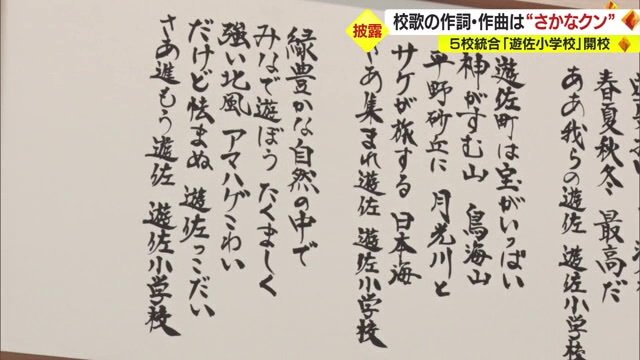 披露
校歌の作詞・作曲は“さかなクン”
5校統合「遊佐小学校」開校
春夏秋冬 最高だ
ああ我らの遊佐 遊佐小学校
遊佐町は宝がいっぱい
神がすむ山 鳥海山
平野砂丘に 月光川と
サケが旅する 日本海
さあ集まれ遊佐 遊佐小学校
緑豊かな自然の中で
みなで遊ぼう たくましく
強い北風 アマハゲこわい
だけど怯まぬ 遊佐っこだい
さあ進もう遊佐 遊佐小学校